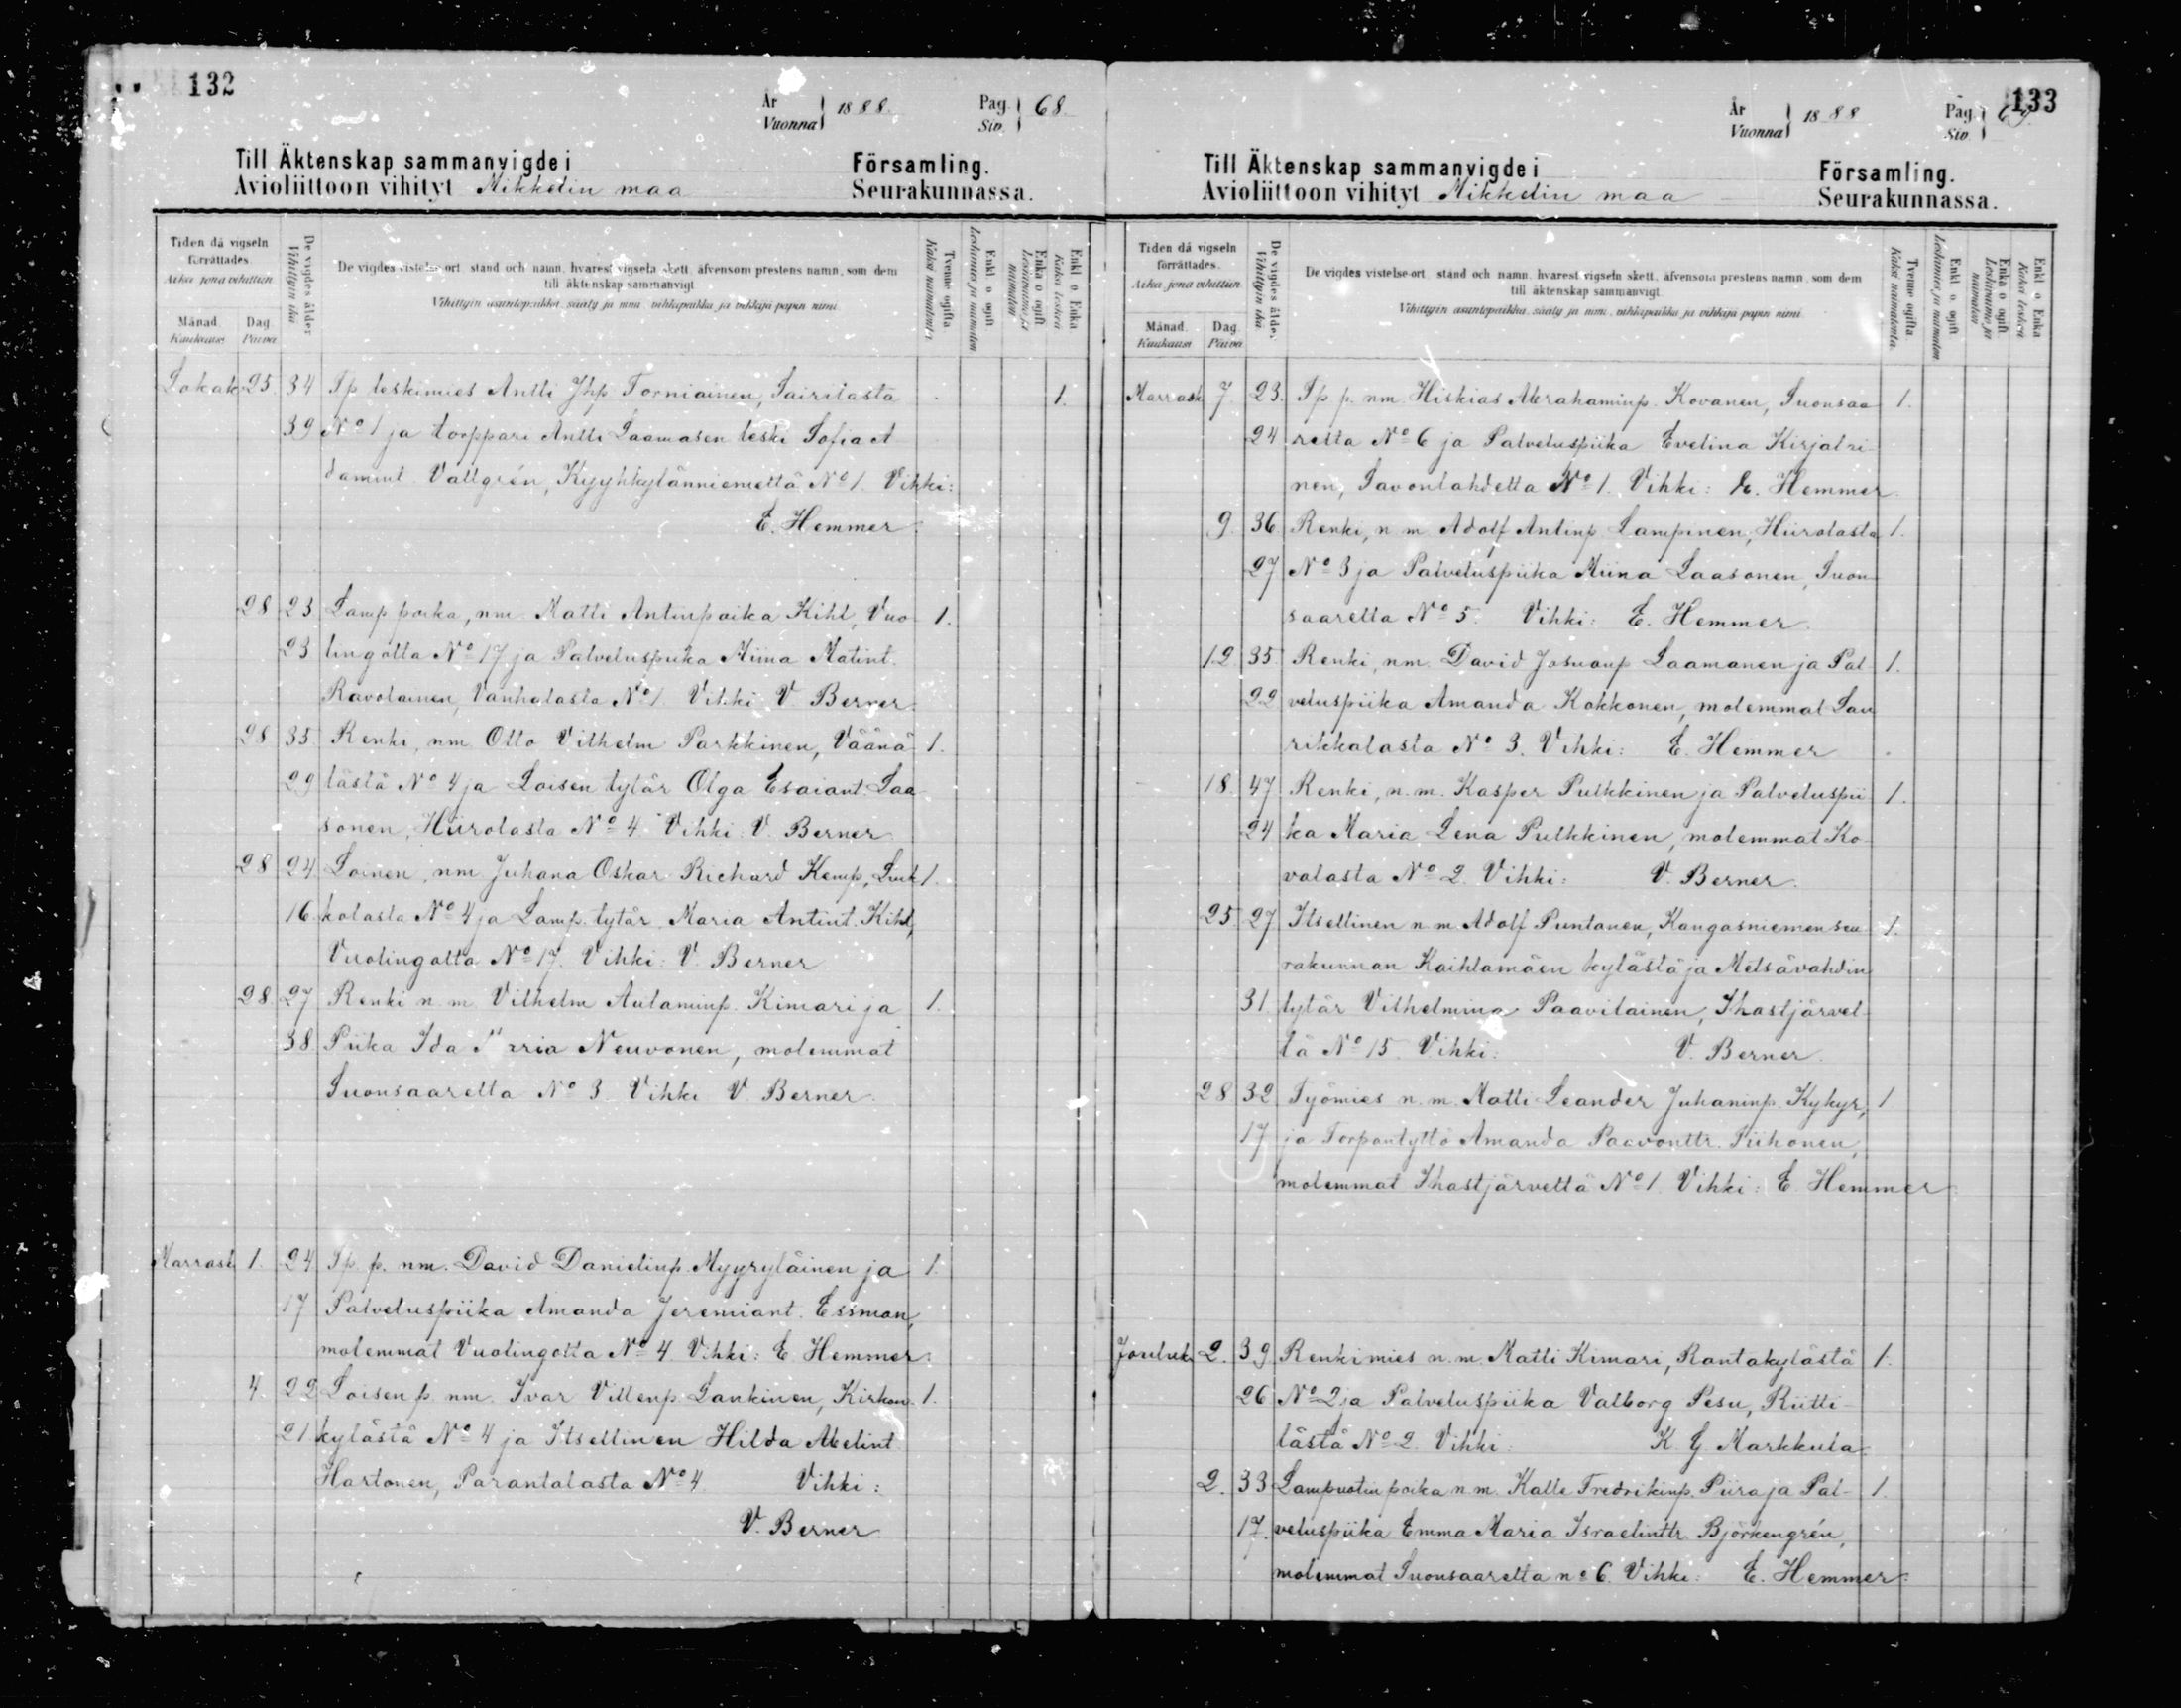 132
År
Vuonna } 1888.
Pag.
Siv. } 68.
Till Äktenskap sammanvigde i Församling.
Avioliittoon vihityt Mikkelin maa Seurakunnassa.
Tiden då vigseln förrättades.
Aika jona vihittiin.
Månad. Kuukausi
Dag. Päivä
De vigdes ålder.
Vihittyin ikä
De vigdes vistelse-ort, stånd och namn, hvarest vigseln skett, äfvensom prestens namn, som dem
till äktenskap sammanvigt.
Vihittyin asuntopaikka, sääty ja nimi, vihkipaikka ja vihkijä papin nimi.
Tvenne ogifta.
Kaksi naimatonta.
Enkl. o. ogift
Leskimies ja naimaton
Enka o. ogift
Leskivaimo ja naimaton
Enkl. o. Enka
Kaksi leskeä
Lokak. 25. 34 Tp. leskimies Antti Jhp. Torniainen, Sairilasta 1.
39 No 1 ja torppari Antti Laamasen leski Sofia A
damint. Vallgrén, Kyyhkylänniemeltä No 1. Vihki:
E. Hemmer.
28 23 Lamp. poika, nm. Matti Antinpoika Kihl, Vuo 1.
23 lingolta No 17 ja Palveluspiika Miina Matint.
Ravolainen, Vanhalasta No 1. Vihki V. Berner.
28 35. Renki, nm. Otto Vilhelm Parkkinen, Väänä 1.
29 lästä No 4 ja Loisen tytär Olga Esaiant. Laa
sonen, Hiirolasta No 4. Vihki: V. Berner.
28 24 Loinen, nm. Juhana Oskar Richard Kemp, Liuk 1.
16. kolasta No 4 ja Lamp. tytär, Maria Antint. Kihl,
Vuolingolta No 17. Vihki: V. Berner
28. 27 Renki n. m. Vilhelm Aulaminp. Kimari ja 1.
38 Piika Ida Maria Neuvonen, molemmat
Suonsaarelta No 3 Vihki V. Berner.
Marrask. 1. 24 Tp. p. nm. David Danielinp. Myyryläinen ja 1.
17 Palveluspiika Amanda Jeremiant. Essman,
molemmat Vuolingolta No 4 Vihki: E. Hemmer.
4. 22 Loisen p. nm. Ivar Villenp. Lankinen, Kirkon- 1.
21 kylästä No 4 ja Itsellinen Hilda Abelint.
Hartonen, Parantalasta No 4. Vihki:
V. Berner.
133
År
Vuonna } 1888
Pag.
Siv. } 69.
Till Äktenskap sammanvigde i Församling.
Avioliittoon vihityt Mikkelin maa Seurakunnassa.
Tiden då vigseln förrättades.
Aika jona vihittiin.
Månad. Kuukausi
Dag. Päivä
De vigdes ålder.
Vihittyin ikä.
De vigdes vistelse-ort, stånd och namn, hvarest vigseln skett, äfvensom prestens namn, som dem
till äktenskap sammanvigt.
Vihittyin asuntopaikka, sääty ja nimi, vihkipaikka ja vihkijä papin nimi.
Tvenne ogifta.
Kaksi naimatonta.
Enkl. o. ogift
Leskimies ja naimaton
Enka o. ogift
Leskivaimo ja naimaton
Enkl. o. Enka
Kaksi leskeä
Marrask. 7. 23. Tp. p. nm. Hiskias Abrahaminp. Kovanen, Suonsaa 1.
24 relta No 6 ja Palveluspiika Evelina Kirjalai-
nen, Savonlahdelta No 1. Vihki: E. Hemmer.
9. 36. Renki, n. m. Adolf Antinp. Lampinen, Hiirolasta 1.
27 No 3 ja Palveluspiika Miina Laasonen, Suon-
saarelta No 5. Vihki: E. Hemmer.
12. 35. Renki, nm. David Josuanp. Laamanen ja Pal- 1.
22 veluspiika Amanda Kokkonen, molemmat Lau
rikkalasta No 3. Vihki: E. Hemmer
18. 47 Renki, n. m. Kasper Pulkkinen ja Palveluspii- 1.
24 ka Maria Lena Pulkkinen, molemmat Ko-
valasta No 2. Vihki: V. Berner.
25. 27 Itsellinen n. m. Adolf Puntanen, Kangasniemen seu- 1.
rakunnan Kaihlamäen kylästä ja Metsävahdin
31 tytär Vilhelmina Paavilainen, Ihastjärvel-
tä No 15. Vihki: V. Berner.
28 32. Työmies n. m. Matti Leander Juhaninp. Kykyr, 1
17 ja Torpantyttö Amanda Paavonttr. Piihonen,
molemmat Ihastjärveltä No 1. Vihki: E. Hemmer
Jouluk. 2. 39. Renkimies n. m. Matti Kimari, Rantakylästä 1.
26 No 2 ja Palveluspiika Valborg Pesu, Riitti-
lästä No 2. Vihki: K. G. Markkula.
2. 33 Lampuotin poika n. m. Kalle Fredrikinp. Piira ja Pal- 1.
17. veluspiika Emma Maria Israelinttr. Björkengrén,
molemmat Suonsaarelta no 6. Vihki: E. Hemmer.